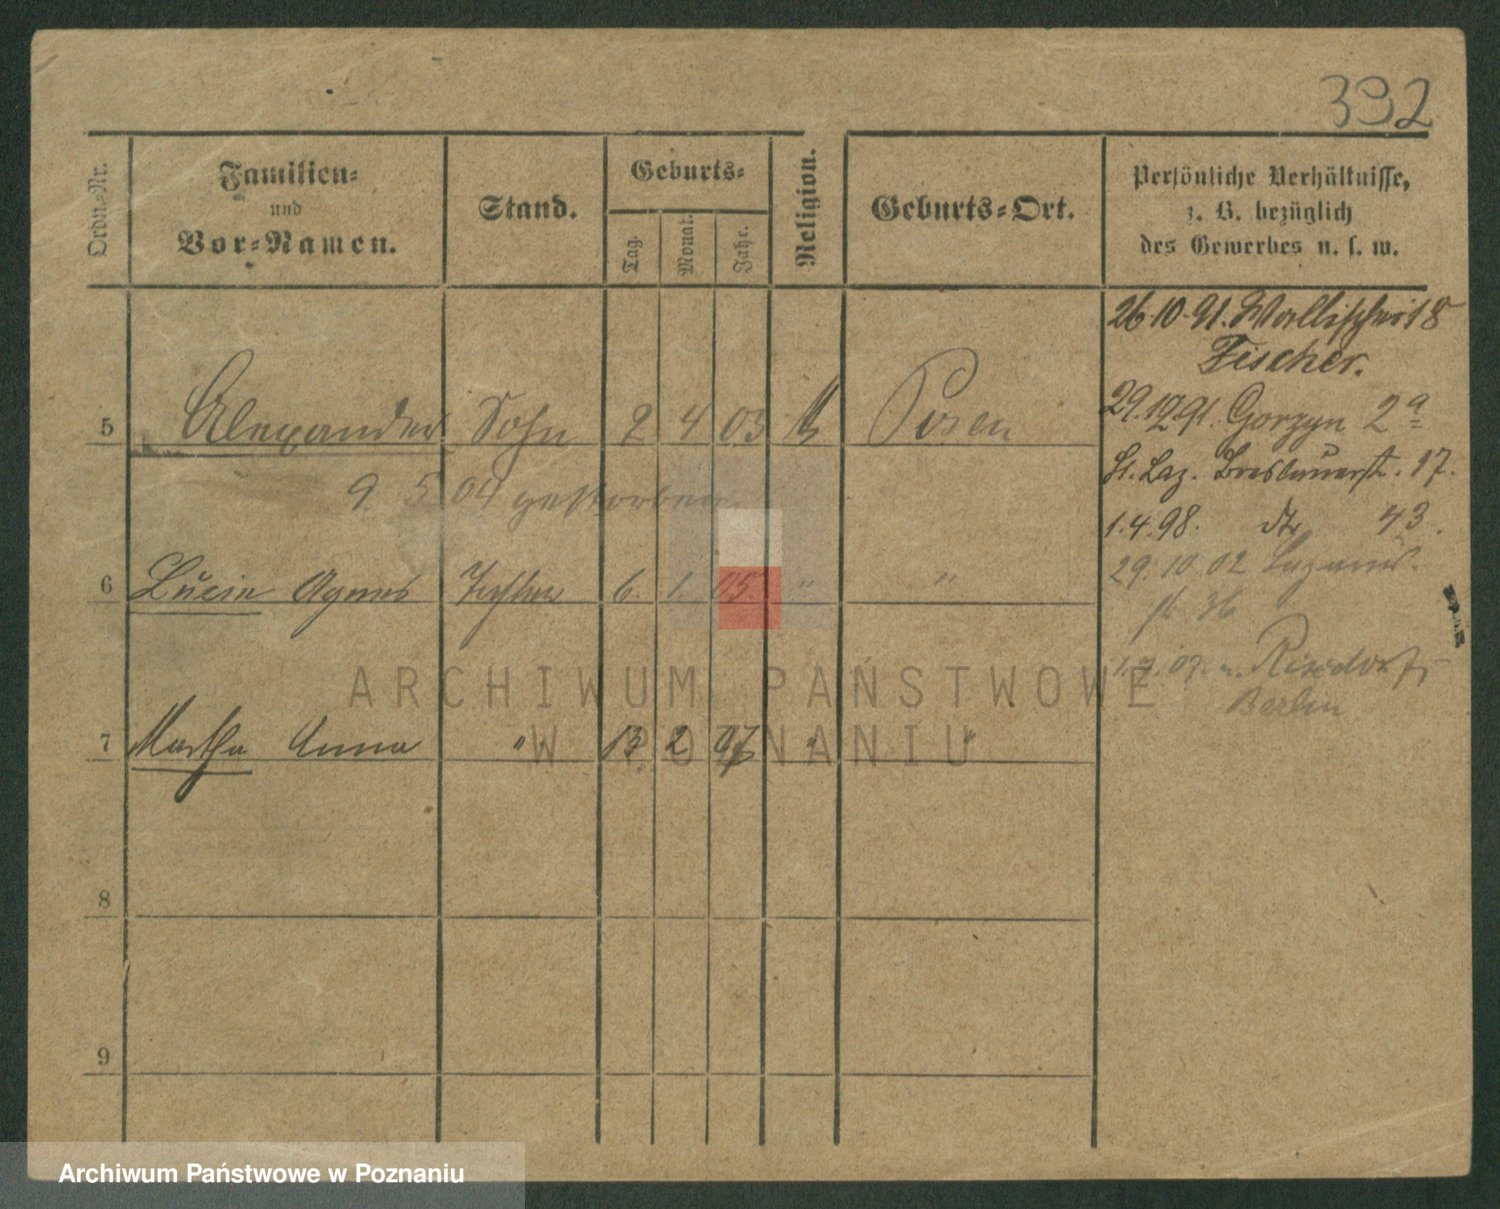 392
Ordn.-Nr.
Familien-
und
Vor-Namen.
Stand.
Geburts-
Tag.
Monat.
Jahr.
Religion.
Geburts-Ort.
Persönliche Verhältnisse,
z. B. bezüglich
des Gewerbes u. s. w.
26 10. 91. Wallischei 18
Fischer.
5 Alexander Sohn 2 4 03 Posen
29.12.91. Gorzyn 2a
9. 5 04 gestorben
St. Laz. Breslauerstr. 17.
1.4.98. dto 43.
6 Lucie Agnes Tochter 6. 1. 05. " "
29. 10 02 Lazarus.
str 36
1.7.07. n. Rixdorf,
Berlin
7 Martha Anna " 13 2 07 " "
8
9
ARCHIWUM PAŃSTWOWE
W POZNANIU
Archiwum Państwowe w Poznaniu